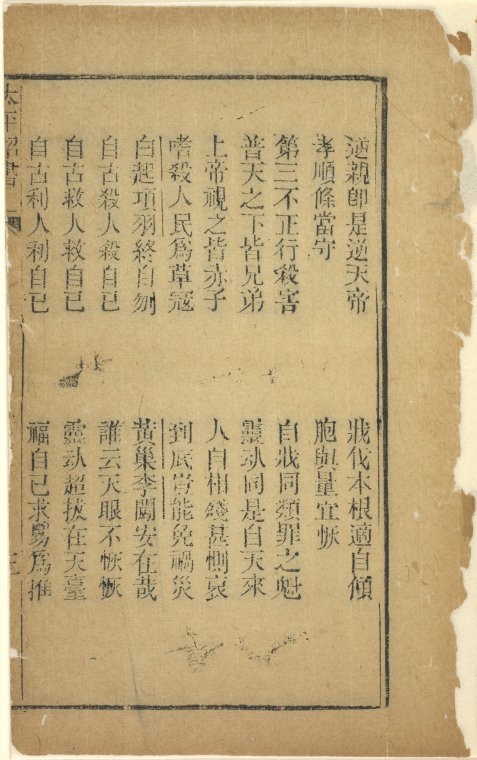 逆親即是逆天帝　戕伐本根適自傾
孝順條當守　胞與量宜恢
第三不正行殺害　自戕同類罪之魁
普天之下皆兄弟　靈魂同是自天來
上帝視之皆赤子　人自相殘甚惻哀
嗜殺人民爲草寇　到底豈能免禍災
白起項羽終自刎　黃巢李闖安在哉
自古殺人殺自己　誰云天眼不恢恢
自古救人救自己　靈魂超拔在天臺
自古利人利自己　福自己求易爲推
太平詔書　三